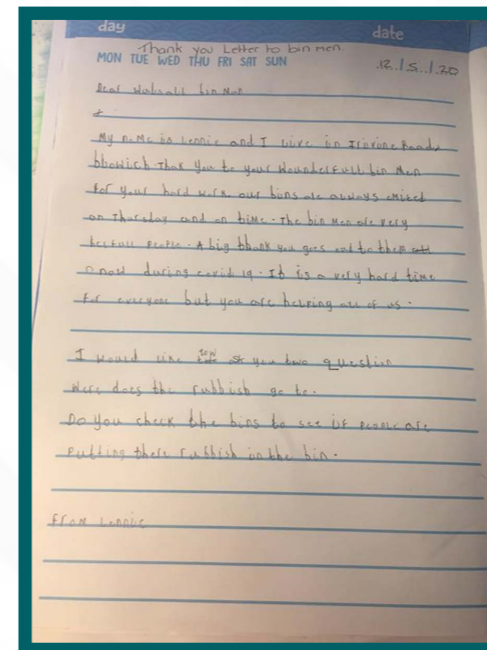 day date
Thank you Letter to bin men.
MON TUE WED THU FRI SAT SUN 12/5/20
Dear bin Men
My name is Lennie and I live in Road,
Thak you to your Wounderfull bin Men
For your hard work. our bins are always emited
on Thursday and on time. The bin Men are very
helfull people. A big thank you goes out to them
now during covid 19. It is a very hard time
For everyone but you are helping all of us.
I would like you two question
Were does the rubbish go to.
Do you check the bins to see if people are
Putting there rubbish in the bin.
From Lennie